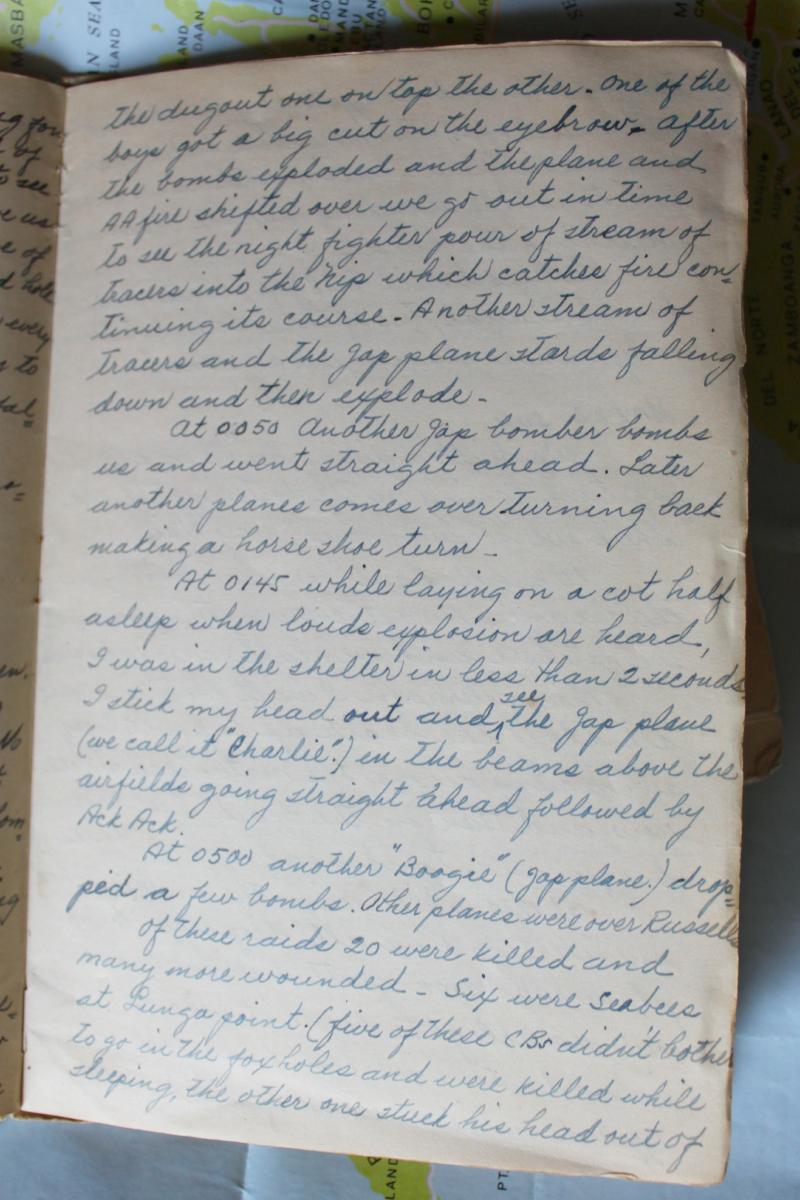 the dugout one on top the other. One of the
boys got a big cut on the eyebrow. After
the bombs exploded and the plane and
AA fire shifted over we go out in time
to see the night fighter pour of stream of
tracers into the Nip which catches fire con-
tinuing its course. Another stream of
tracers and the Jap plane stards falling
down and then explode.
At 0050 another Jap bomber bombs
us and went straight ahead. Later
another planes comes over turning back
making a horse shoe turn.
At 0145 while laying on a cot half
asleep when louds explosion are heard,
I was in the shelter in less than 2 seconds.
I stick my head out and see the Jap plane
(we call it "Charlie".) in the beams above the
airfields going straight ahead followed by
Ack Ack.
At 0500 another "Boogie" (Jap plane.) drop=
ped a few bombs. Other planes were over Russells
Of these raids 20 were killed and
many more wounded - Six were Seabees
at Lunga point. (five of these CBs didn't bother
to go in the foxholes and were killed while
sleeping, the other one stuck his head out of
MASBA
SEA
LAND
DAAN
BOH
DEL NORTE
ZAMBOANGA
LANAO